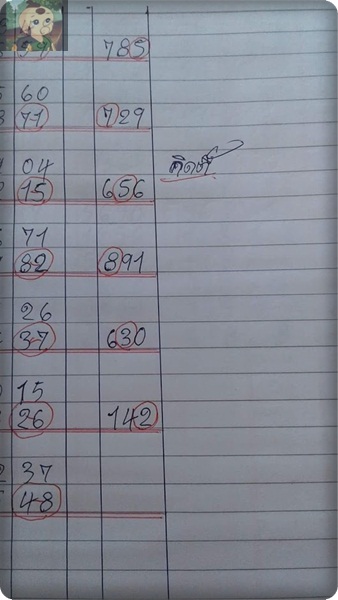 785
60
71 729
04
15 656
71
82 891
26
37 630
15
26 142
37
48